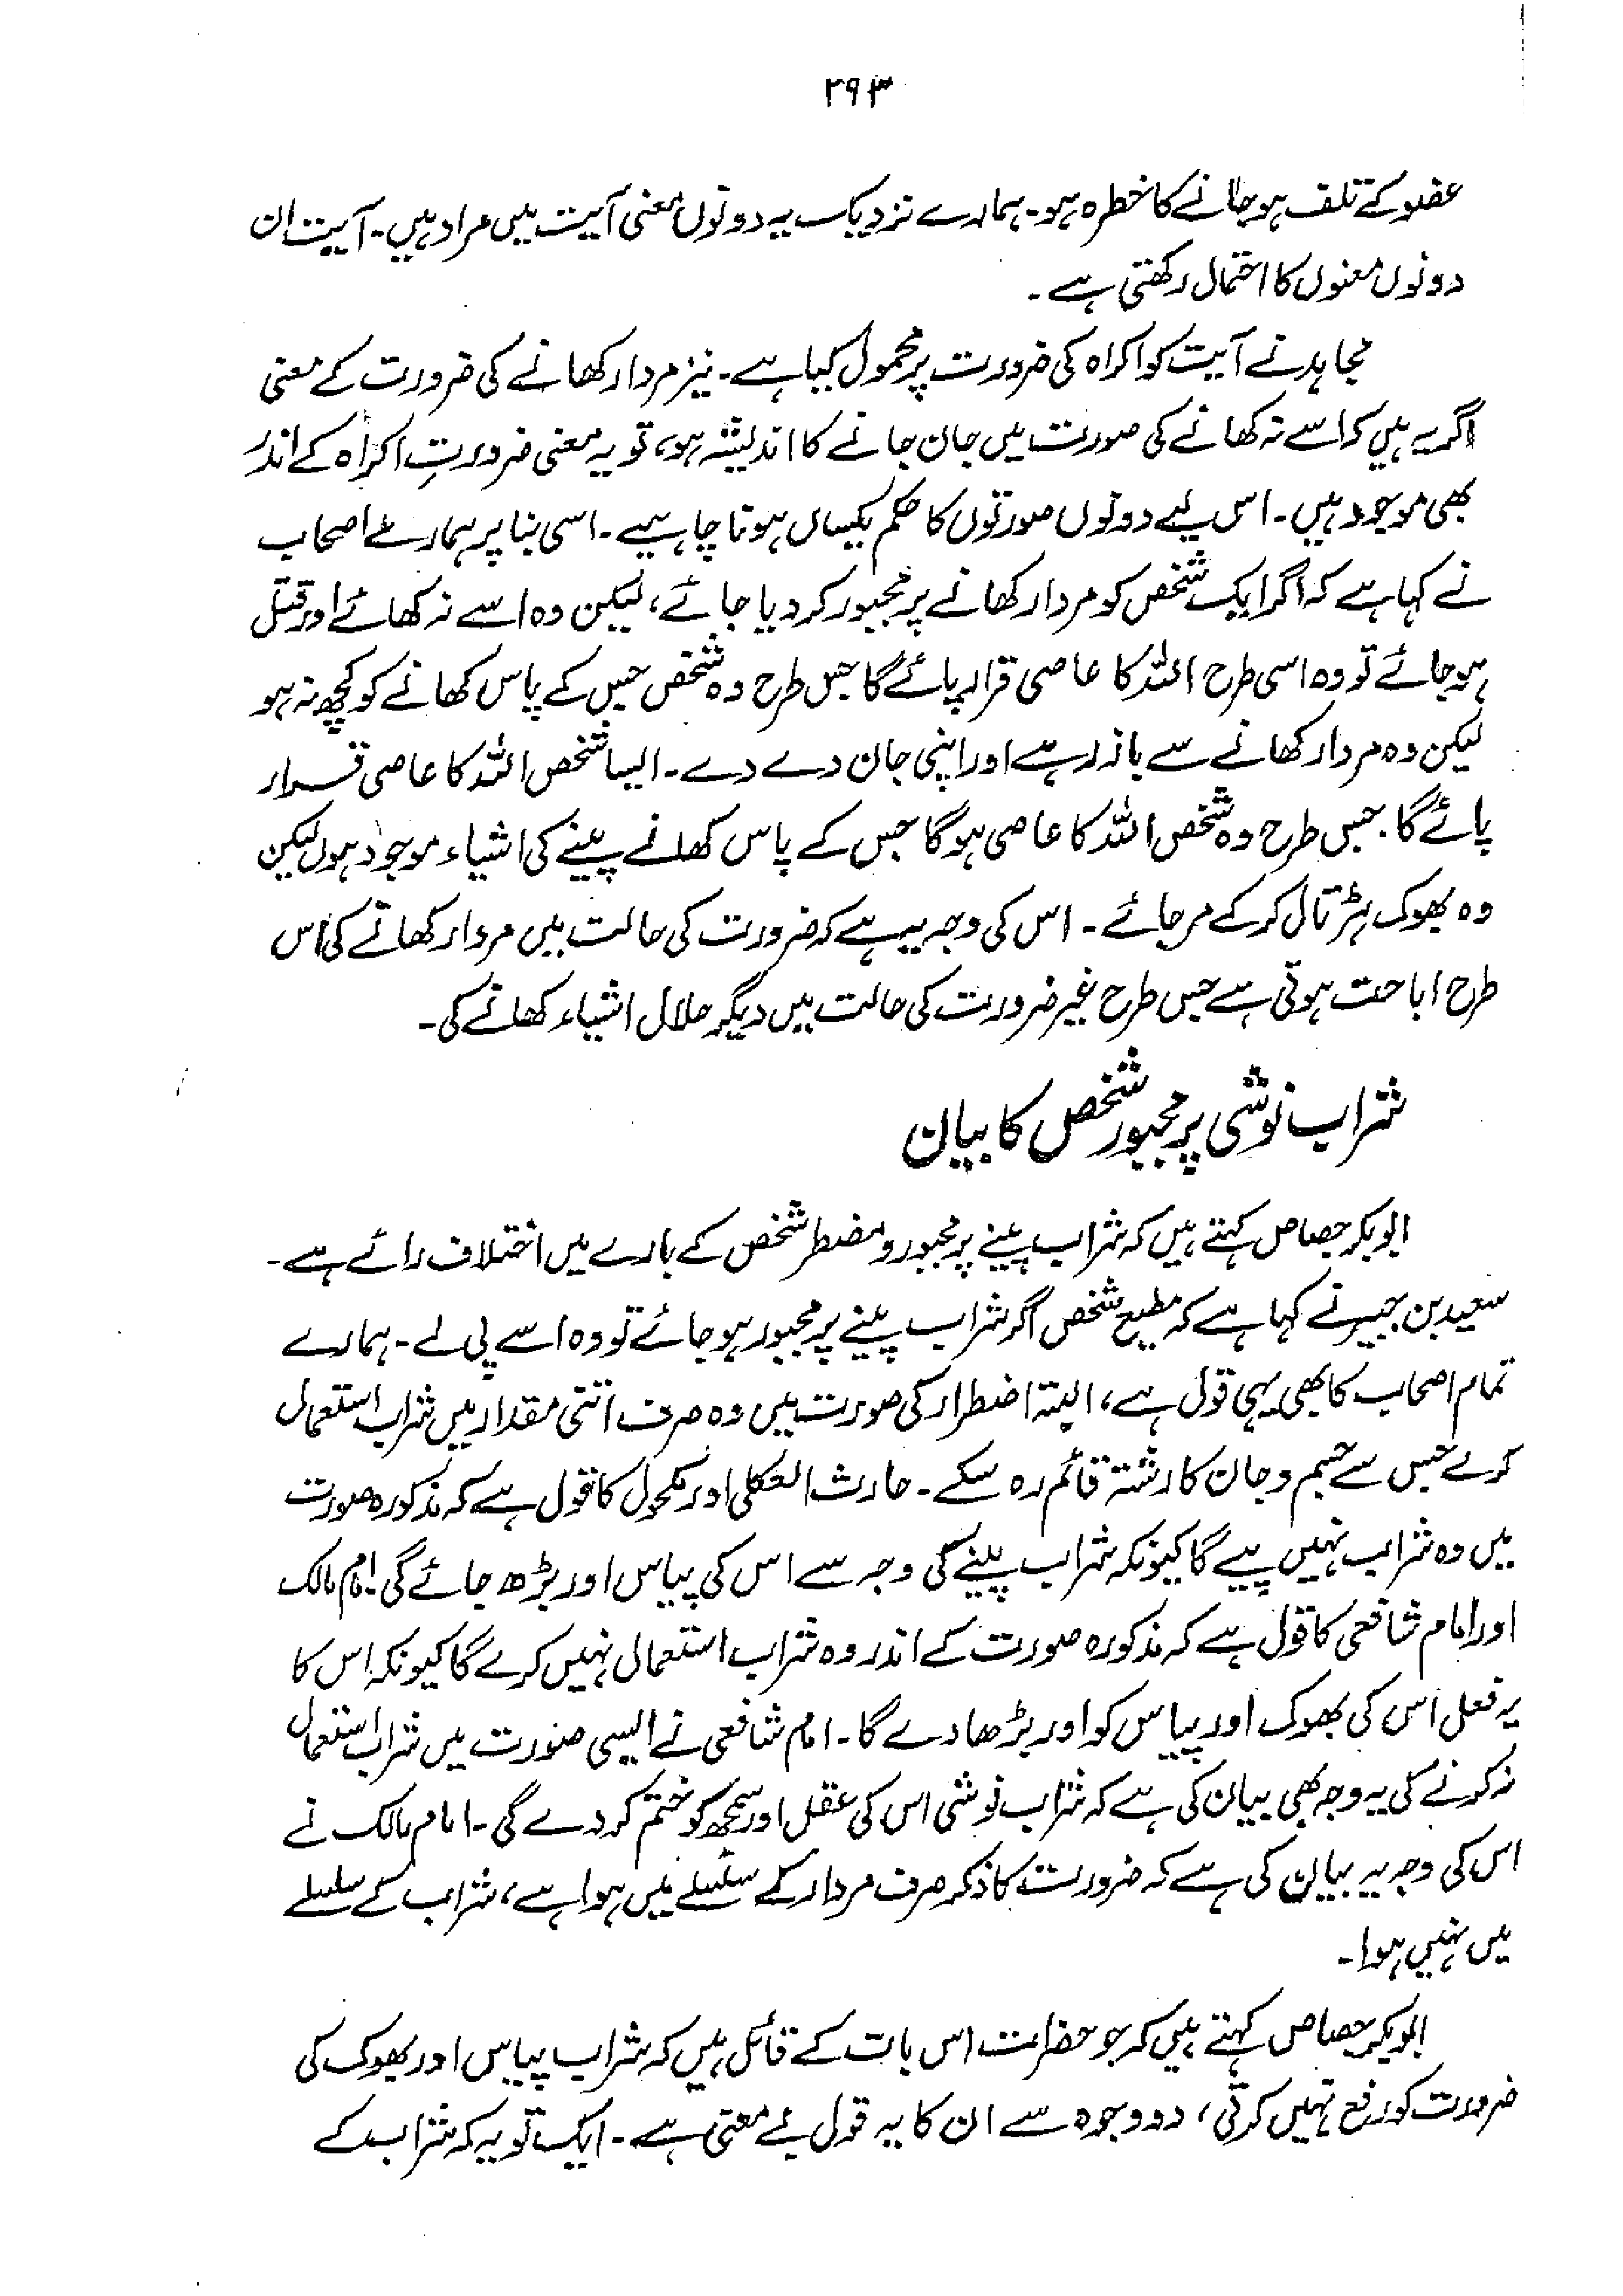 ۲۹۳
عضو کے تلف ہو جانے کا خطرہ ہو۔ ہمارے نزدیک یہ دونوں معنی آیت میں مراد ہیں۔ آیت ان
دونوں معنوں کا احتمال رکھتی ہے۔
مجاہد نے آیت کو اکراہ کی ضرورت پر محمول کیا ہے۔ نیز مردار کھانے کی ضرورت کے معنی
اگر یہ ہیں کہ اسے نہ کھانے کی صورت میں جان جانے کا اندیشہ ہو، تو یہ معنی ضرورتِ اکراہ کے اندر
بھی موجود ہیں۔ اس لیے دونوں صورتوں کا حکم یکساں ہونا چاہیے۔ اسی بنا پر ہمارے اصحاب
نے کہا ہے کہ اگر ایک شخص کو مردار کھانے پر مجبور کر دیا جائے، لیکن وہ اسے نہ کھائے اور قتل
ہو جائے تو وہ اسی طرح اللہ کا عاصی قرار پائے گا جس طرح وہ شخص جس کے پاس کھانے کو کچھ نہ ہو
لیکن وہ مردار کھانے سے باز رہے اور اپنی جان دے دے۔ ایسا شخص اللہ کا عاصی قرار
پائے گا۔ جس طرح وہ شخص اللہ کا عاصی ہو گا جس کے پاس کھانے پینے کی اشیاء موجود ہوں لیکن
وہ بھوک ہڑتال کر کے مر جائے۔ اس کی وجہ یہ ہے کہ ضرورت کی حالت میں مردار کھانے کی اس
طرح اباحت ہوتی ہے جس طرح غیر ضرورت کی حالت میں دیگر حلال اشیاء کھانے کی۔
شراب نوشی پر مجبور شخص کا بیان
ابوبکر جصاص کہتے ہیں کہ شراب پینے پر مجبور و مضطر شخص کے بارے میں اختلاف رائے ہے۔
سعید بن جبیر نے کہا ہے کہ مطیع شخص اگر شراب پینے پر مجبور ہو جائے تو وہ اسے پی لے۔ ہمارے
تمام اصحاب کا بھی یہی قول ہے، البتہ اضطرار کی صورت میں وہ صرف اتنی مقدار میں شراب استعمال
کرے جس سے جسم و جان کا رشتہ قائم رہ سکے۔ حارث العکلی اور مکحول کا قول ہے کہ مذکورہ صورت
میں وہ شراب نہیں پیے گا کیونکہ شراب پینے کی وجہ سے اس کی پیاس اور بڑھ جائے گی۔ امام مالک
اور امام شافعی کا قول ہے کہ مذکورہ صورت کے اندر وہ شراب استعمال نہیں کرے گا کیونکہ اس کا
یہ فعل اس کی بھوک اور پیاس کو اور بڑھا دے گا۔ امام شافعی نے ایسی صورت میں شراب استعمال
نہ کرنے کی یہ وجہ بھی بیان کی ہے کہ شراب نوشی اس کی عقل اور سمجھ کو ختم کر دے گی۔ امام مالک نے
اس کی وجہ یہ بیان کی ہے کہ ضرورت کا ذکر صرف مردار کے سلسلے میں ہوا ہے، شراب کے سلسلے
میں نہیں ہوا۔
ابوبکر جصاص کہتے ہیں کہ جو حضرات اس بات کے قائل ہیں کہ شراب پیاس اور بھوک کی
ضرورت کو رفع نہیں کرتی، دو وجوہ سے ان کا یہ قول بے معنی ہے۔ ایک تو یہ کہ شراب کے